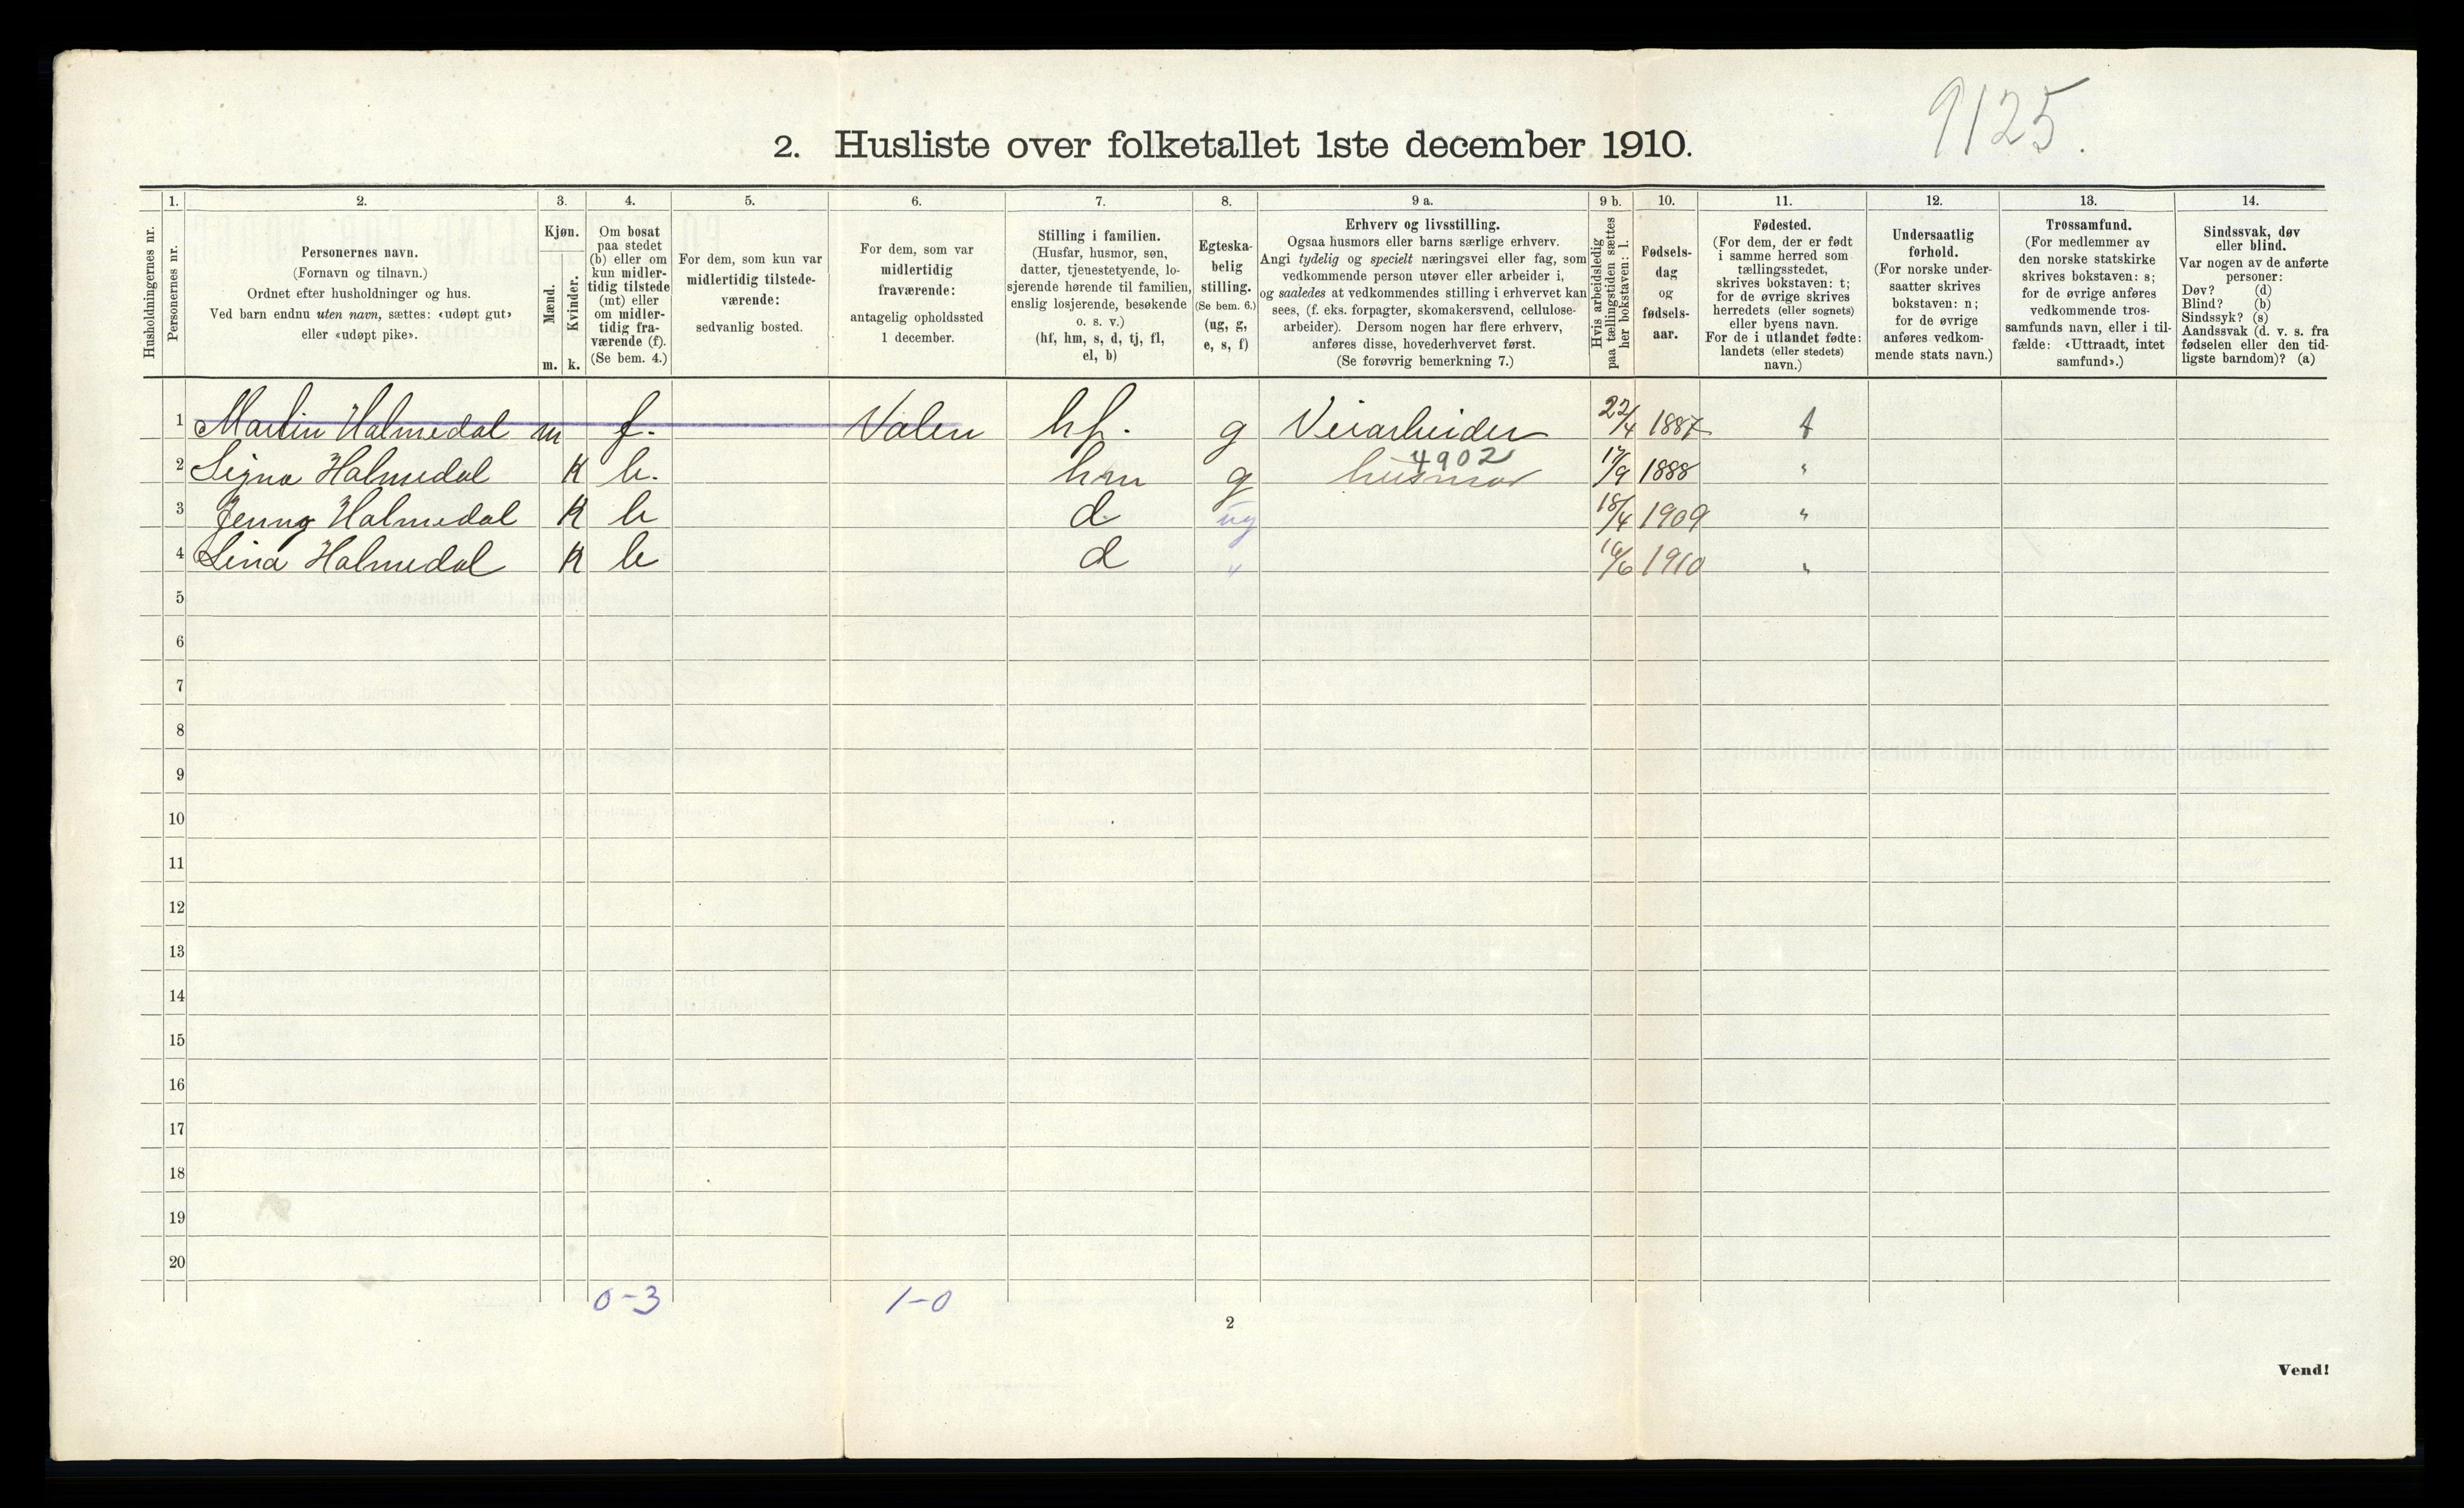 9125.
2. Husliste over folketallet 1ste december 1910.
1. 2. 3. 4. 5. 6. 7. 8. 9 a. 9 b. 10. 11. 12. 13. 14.
Husholdningernes nr.
Personernes nr.
Personernes navn.
(Fornavn og tilnavn.)
Ordnet efter husholdninger og hus.
Ved barn endnu uten navn, sættes: «udøpt gut»
eller «udøpt pike».
Kjøn.
Mænd.
Kvinder.
m. k.
Om bosat
paa stedet
(b) eller om
kun midler-
tidig tilstede
(mt) eller
om midler-
tidig fra-
værende (f).
(Se bem. 4.)
For dem, som kun var
midlertidig tilstede-
værende:
sedvanlig bosted.
For dem, som var
midlertidig
fraværende:
antagelig opholdssted
1 december.
Stilling i familien.
(Husfar, husmor, søn,
datter, tjenestetyende, lo-
sjerende hørende til familien,
enslig losjerende, besøkende
o. s. v.)
(hf, hm, s, d, tj, fl,
el, b)
Egteska-
belig
stilling.
(Se bem. 6.)
(ug, g,
e, s, f)
Erhverv og livsstilling.
Ogsaa husmors eller barns særlige erhverv.
Angi tydelig og specielt næringsvei eller fag, som
vedkommende person utøver eller arbeider i,
og saaledes at vedkommendes stilling i erhvervet kan
sees, (f. eks. forpagter, skomakersvend, cellulose-
arbeider). Dersom nogen har flere erhverv,
anføres disse, hovederhvervet først.
(Se forøvrig bemerkning 7.)
Hvis arbeidsledig
paa tællingstiden sættes
her bokstaven: l.
Fødsels-
dag
og
fødsels-
aar.
Fødested.
(For dem, der er født
i samme herred som
tællingsstedet,
skrives bokstaven: t;
for de øvrige skrives
herredets (eller sognets)
eller byens navn.
For de i utlandet fødte:
landets (eller stedets)
navn.)
Undersaatlig
forhold.
(For norske under-
saatter skrives
bokstaven: n;
for de øvrige
anføres vedkom-
mende stats navn.)
Trossamfund.
(For medlemmer av
den norske statskirke
skrives bokstaven: s;
for de øvrige anføres
vedkommende tros-
samfunds navn, eller i til-
fælde: «Uttraadt, intet
samfund».)
Sindssvak, døv
eller blind.
Var nogen av de anførte
personer:
Døv? (d)
Blind? (b)
Sindssyk? (s)
Aandssvak (d. v. s. fra
fødselen eller den tid-
ligste barndom)? (a)
1 Martin Halmedal m f. Valen hf. g Veiarbeider 22/4 1887 t
4902
2 Signa Halmedal K b. hm g husmor 17/9 1888 "
3 Jenny Halmedal K b d ug 18/4 1909 "
4 Lina Halmedal K b d " 16/6 1910 "
5
6
7
8
9
10
11
12
13
14
15
16
17
18
19
20
0-3 1-0
2
Vend!